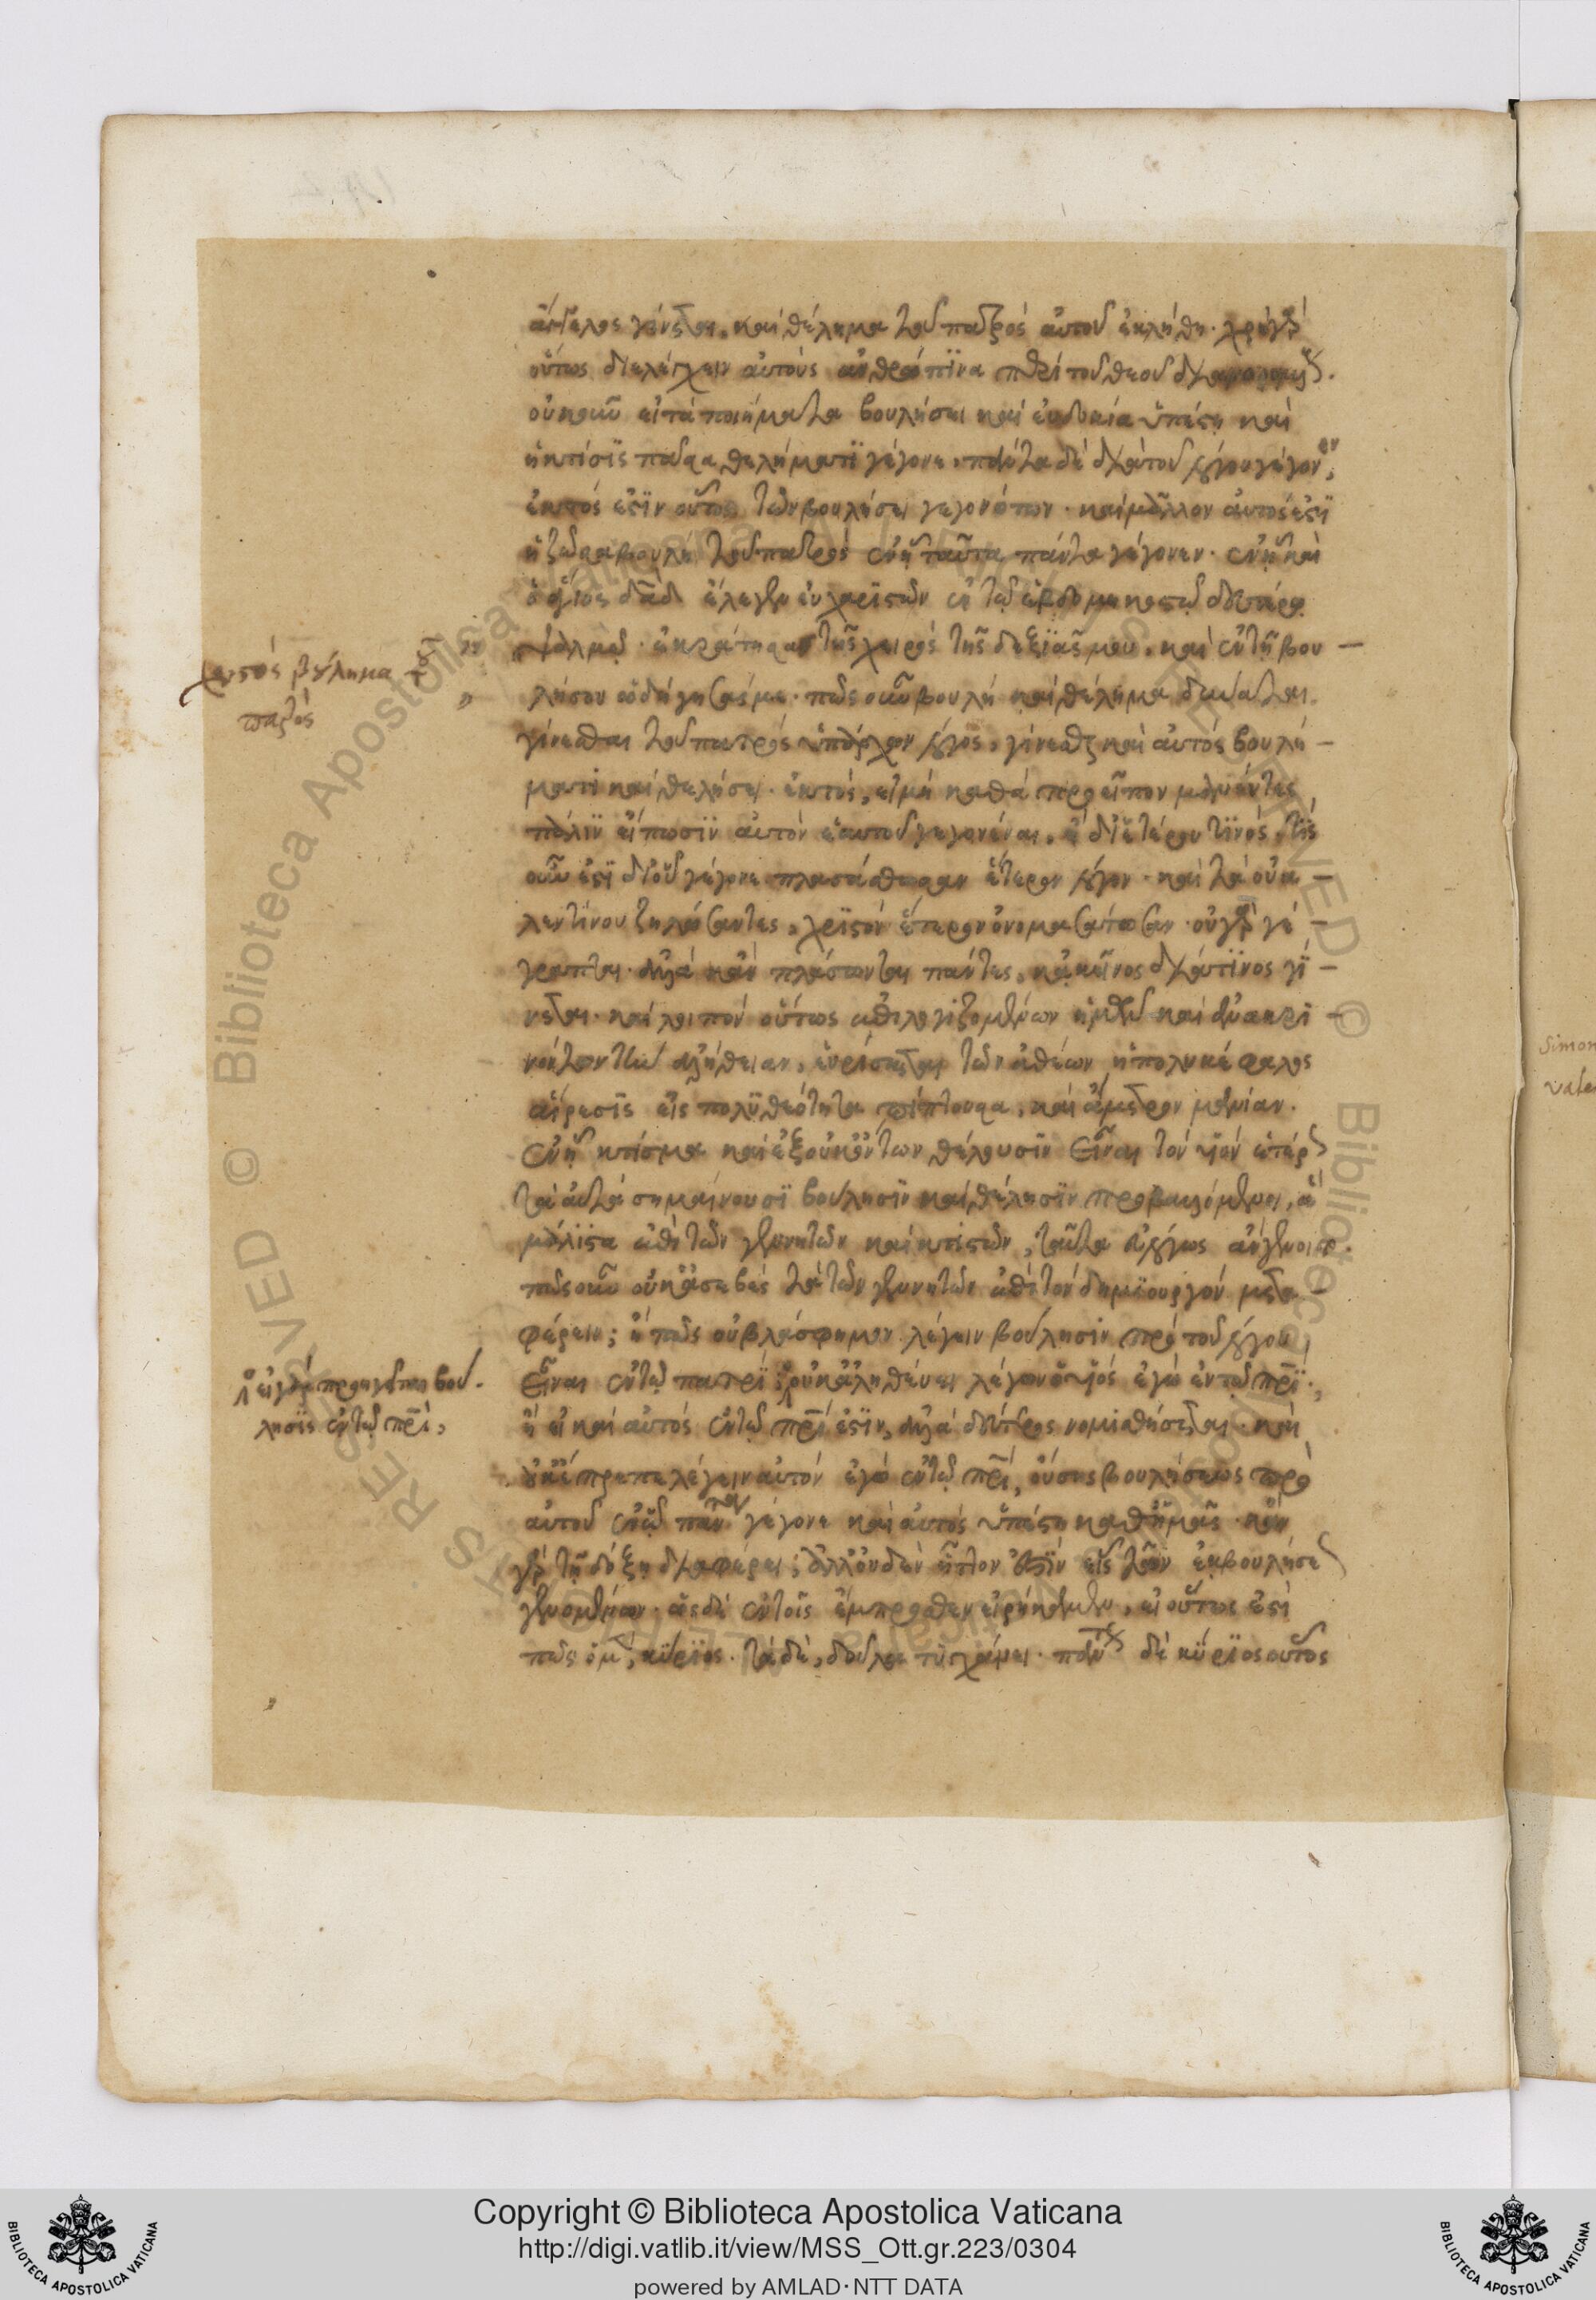 ἄγγελος γίνεται, καὶ θέλημα τοῦ πατρὸς αὐτοῦ ἐκλήθη. χρὴ γὰρ
οὕτως διελέγχειν αὐτοὺς ἀνθρώπινα περὶ τοῦ θεοῦ
οὐκοῦν εἰ τὰ ποιήματα βουλήσει καὶ εὐδοκία ὑπέστη καὶ
ἡ κτίσις πᾶσα θελήματι γέγονε, πάντα δὲ διὰ τοῦ λόγου γέγονεν,
ἐκτός ἐστιν οὗτος τῶν βουλήσει γεγονότων. καὶ μᾶλλον αὐτός ἐστι
ἡ ζῶσα βουλὴ τοῦ πατρὸς ἐν ᾗ ταῦτα πάντα γέγονεν. ἐν ᾗ καὶ
ὁ ἅγιος δαδ ἔλεγεν εὐχαριστῶν ἐν τῷ ἑβδομηκοστῷ δευτέρῳ
ψαλμῷ. ἐκράτησας τῆς χειρὸς τῆς δεξιᾶς μου, καὶ ἐν τῇ βου
λήσου ὡδήγησάς με. πῶς οὖν βουλὴ καὶ θέλημα δύναται
γίνεσθαι τοῦ πατρὸς ὑπάρχων λόγος, γίνεσθαι καὶ αὐτὸς βουλή
ματι καὶ θελήσει. ἐκτός, εἰ μὴ καθὰ προεῖπον μανέντες
πάλιν εἴπωσιν αὐτὸν ἑαυτοῦ γεγονέναι, ἢ δι᾽ ἑτέρου τινός. τίς
οὖν ἐστι δι᾽ οὗ γέγονε πλασάσθωσαν ἕτερον λόγον. καὶ τὰ οὐα
λεντίνου ζηλώσαντες, χριστὸν ἕτερον ὀνομασάτωσαν. οὐ γὰρ γέ
γραπται. ἀλλὰ κἂν πλάσωνται πάντες, κἀκεῖνος διά τινος γί
νεται. καὶ λοιπὸν οὕτως ἐπιλογιζομένων ἡμῶν καὶ ἀνακρι
νόντων τὴν ἀλήθειαν, εὑρίσκεται τῶν ἀθέων ἡ πολυκέφαλος
αἵρεσις εἰς πολυθεότητα πίπτουσα, καὶ ἄμετρον μανίαν.
ἐν ᾗ κτίσμα καὶ ἐξ οὐκ ὄντων θέλουσιν εἶναι τὸν υἱὸν ἑτέρως
τὰ αὐτὰ σημαίνουσι βούλησιν καὶ θέλησιν προβαλλόμενοι, ἃ
μάλιστα ἐπὶ τῶν γενητῶν καὶ κτιστῶν, ταῦτα
πῶς οὖν οὐκ ἀσεβὲς τὰ τῶν γενητῶν ἐπὶ τὸν δημιουργὸν μετα
φέρειν; ἢ πῶς οὐ βλάσφημον λέγειν βούλησιν πρὸ τοῦ λόγου
εἶναι ἐν τῷ πατρί; οὐκ ἀληθεύει λέγων ὁ υἱὸς ἐγὼ ἐν τῷ πρι.
ἢ εἰ καὶ αὐτὸς ἐν τῷ πρι ἐστιν, ἀλλὰ δεύτερος νομισθήσεται. καὶ
οὐκ ἔπρεπε λέγειν αὐτὸν ἐγὼ ἐν τῷ πρι, οὔσης βουλήσεως πρὸ
αὐτοῦ ἐν ᾧ πάντα γέγονε καὶ αὐτὸς ὑπέστη καθ᾽ ἡμᾶς. κἂν
γὰρ τῇ δόξῃ διαφέρει, ἀλλ᾽ οὐδὲν ἧττον ἐστὶν εἷς τῶν ἐκ βουλήσεως
γενομένων. ὡς δὲ ἐν τοῖς ἔμπροσθεν εἰρήκαμεν, εἰ οὕτως ἐστὶ
πῶς ὁ μὲν, κύριος. τὰ δὲ, δοῦλα τυγχάνει. πάντων δὲ κύριος οὗτος
χριστὸς βούλημα τοῦ
πατρός
εἰ γὰρ προηγεῖται βού
λησις ἐν τῷ πρι,
Simon
Vale
Copyright © Biblioteca Apostolica Vaticana
http://digi.vatlib.it/view/MSS_Ott.gr.223/0304
powered by AMLAD·NTT DATA